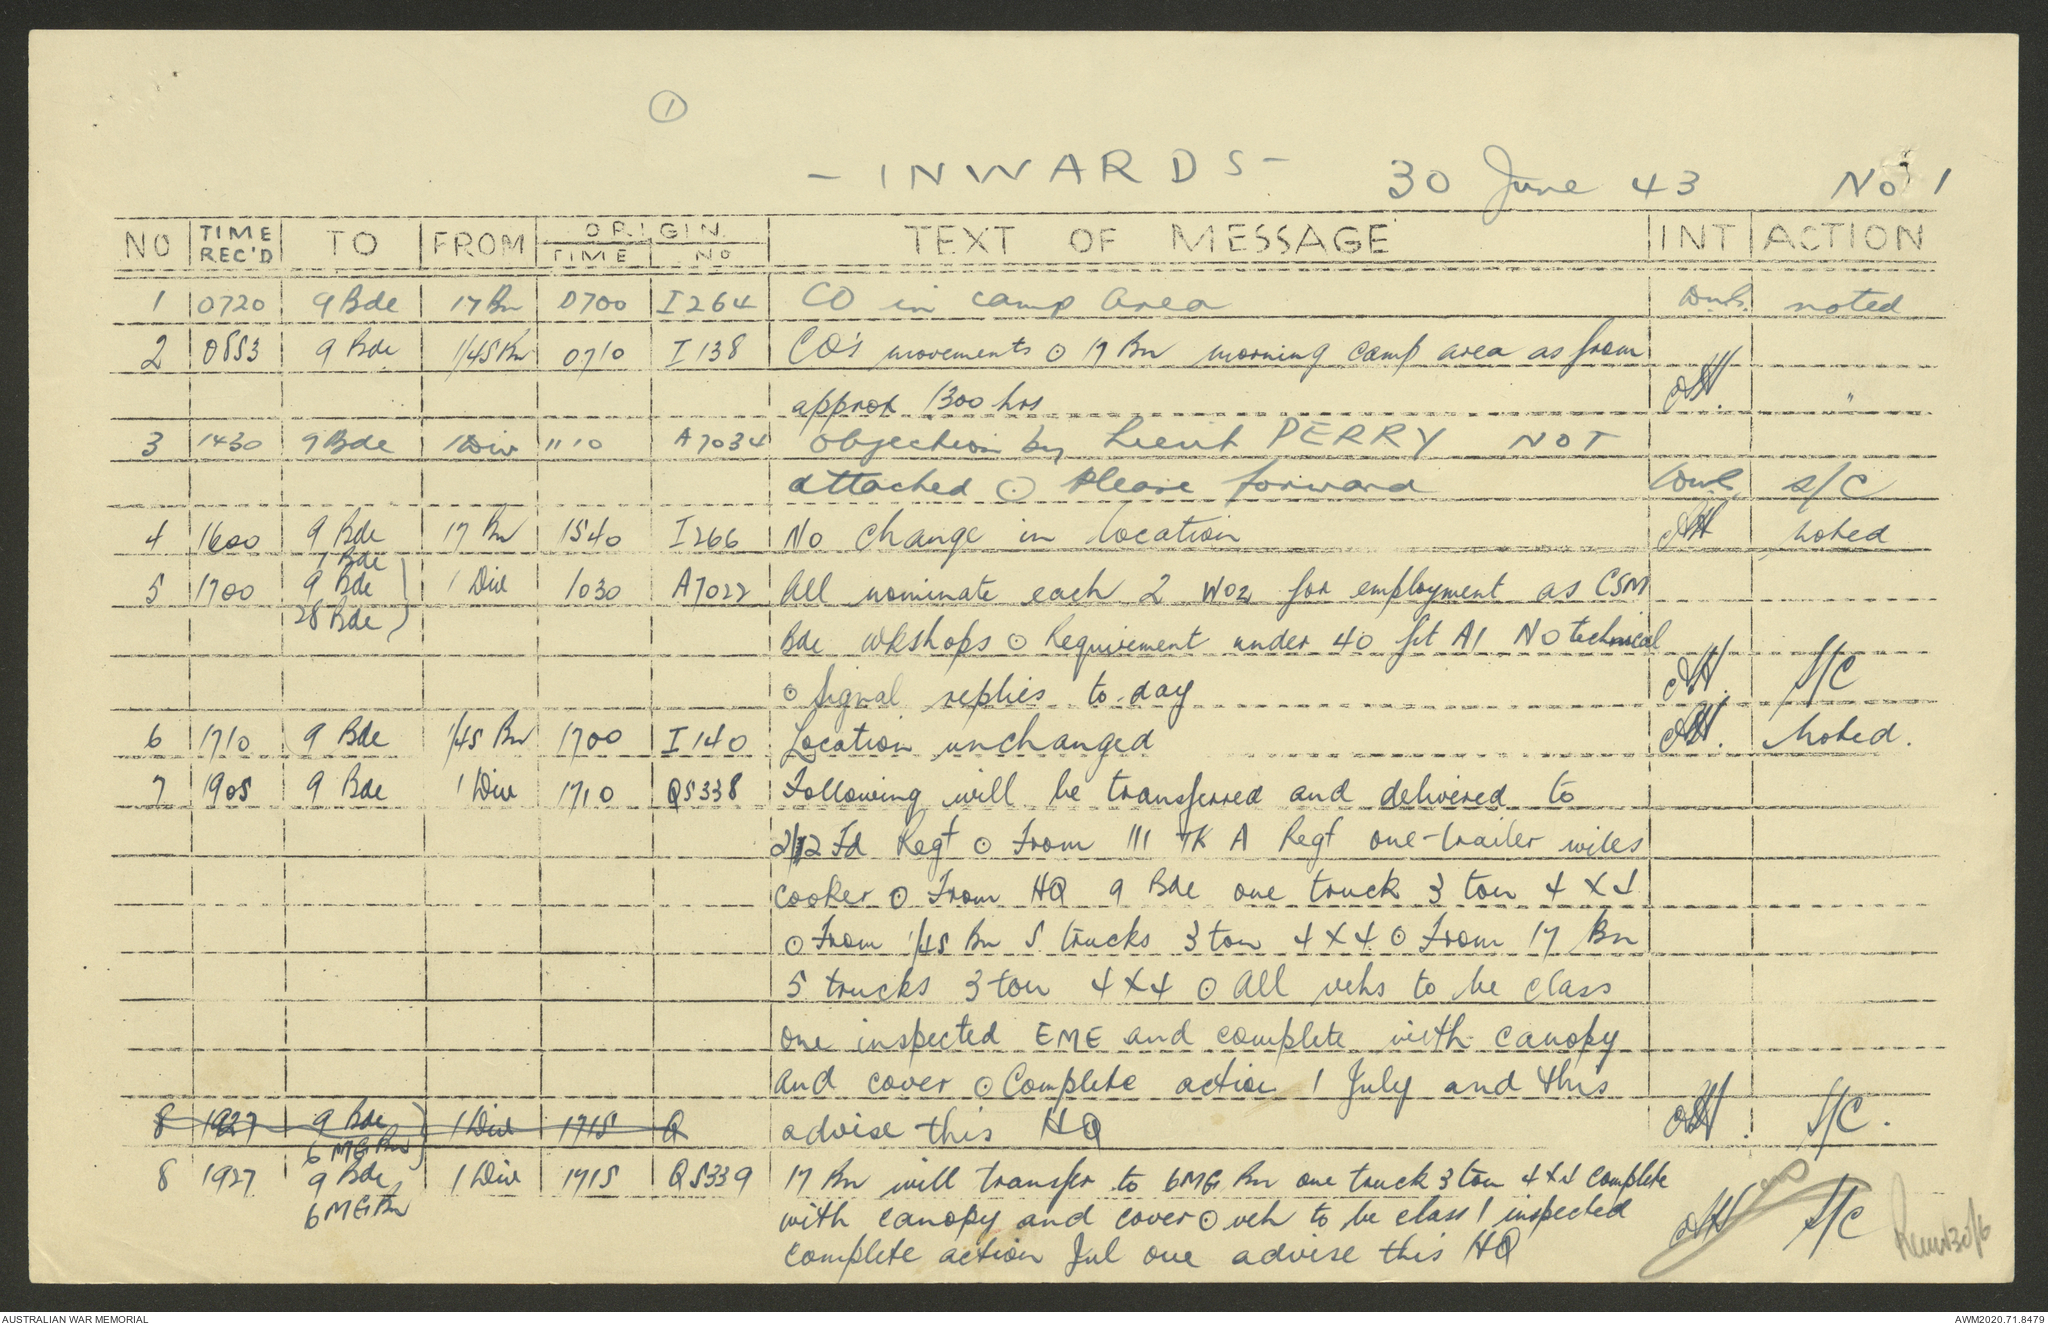 1
- INWARDS - 30 June 43 No 1
NO TIME REC'D TO FROM ORIGIN TIME NO TEXT OF MESSAGE INT ACTION
1 0720 9 Bde 17 Bn 0700 I264 CO in camp area noted
2 0853 9 Bde 1/45 Bn 0710 I138 CO's movements ⊙ 17 Bn morning camp area as from
approx 1300 hrs "
3 1430 9 Bde 1 Div 1110 A7034 Objection by Lieut PERRY NOT
attached ⊙ Please forward S/C
4 1600 9 Bde 17 Bn 1540 I266 No change in location noted
7 Bde
5 1700 9 Bde 1 Div 1030 A7022 All nominate each 2 WO2 for employment as CSM
28 Bde Bde Wkshops ⊙ Requirement under 40 fit A1 No technical
⊙ Signal replies to-day S/C
6 1710 9 Bde 1/45 Bn 1700 I140 Location unchanged Noted.
7 1905 9 Bde 1 Div 1710 QS338 Following will be transferred and delivered to
2/12 Fd Regt ⊙ From 111 TK A Regt one-trailer wiles
cooker ⊙ From HQ 9 Bde one truck 3 ton 4 X 4
⊙ From 1/45 Bn 5 trucks 3 ton 4 X 4 ⊙ From 17 Bn
5 trucks 3 ton 4 X 4 ⊙ All vehs to be class
one inspected EME and complete with canopy
and cover ⊙ Complete action 1 July and this
8 1927 9 Bde 1 Div 1715 Q advise this HQ S/C.
6 MG Bn
8 1927 9 Bde 1 Div 1715 QS339 17 Bn will transfer to 6 MG Bn one truck 3 ton 4 X 4 complete
6 MG Bn with canopy and cover ⊙ veh to be class 1 inspected S/C
complete action Jul one advise this HQ
AUSTRALIAN WAR MEMORIAL AWM2020.71.8479